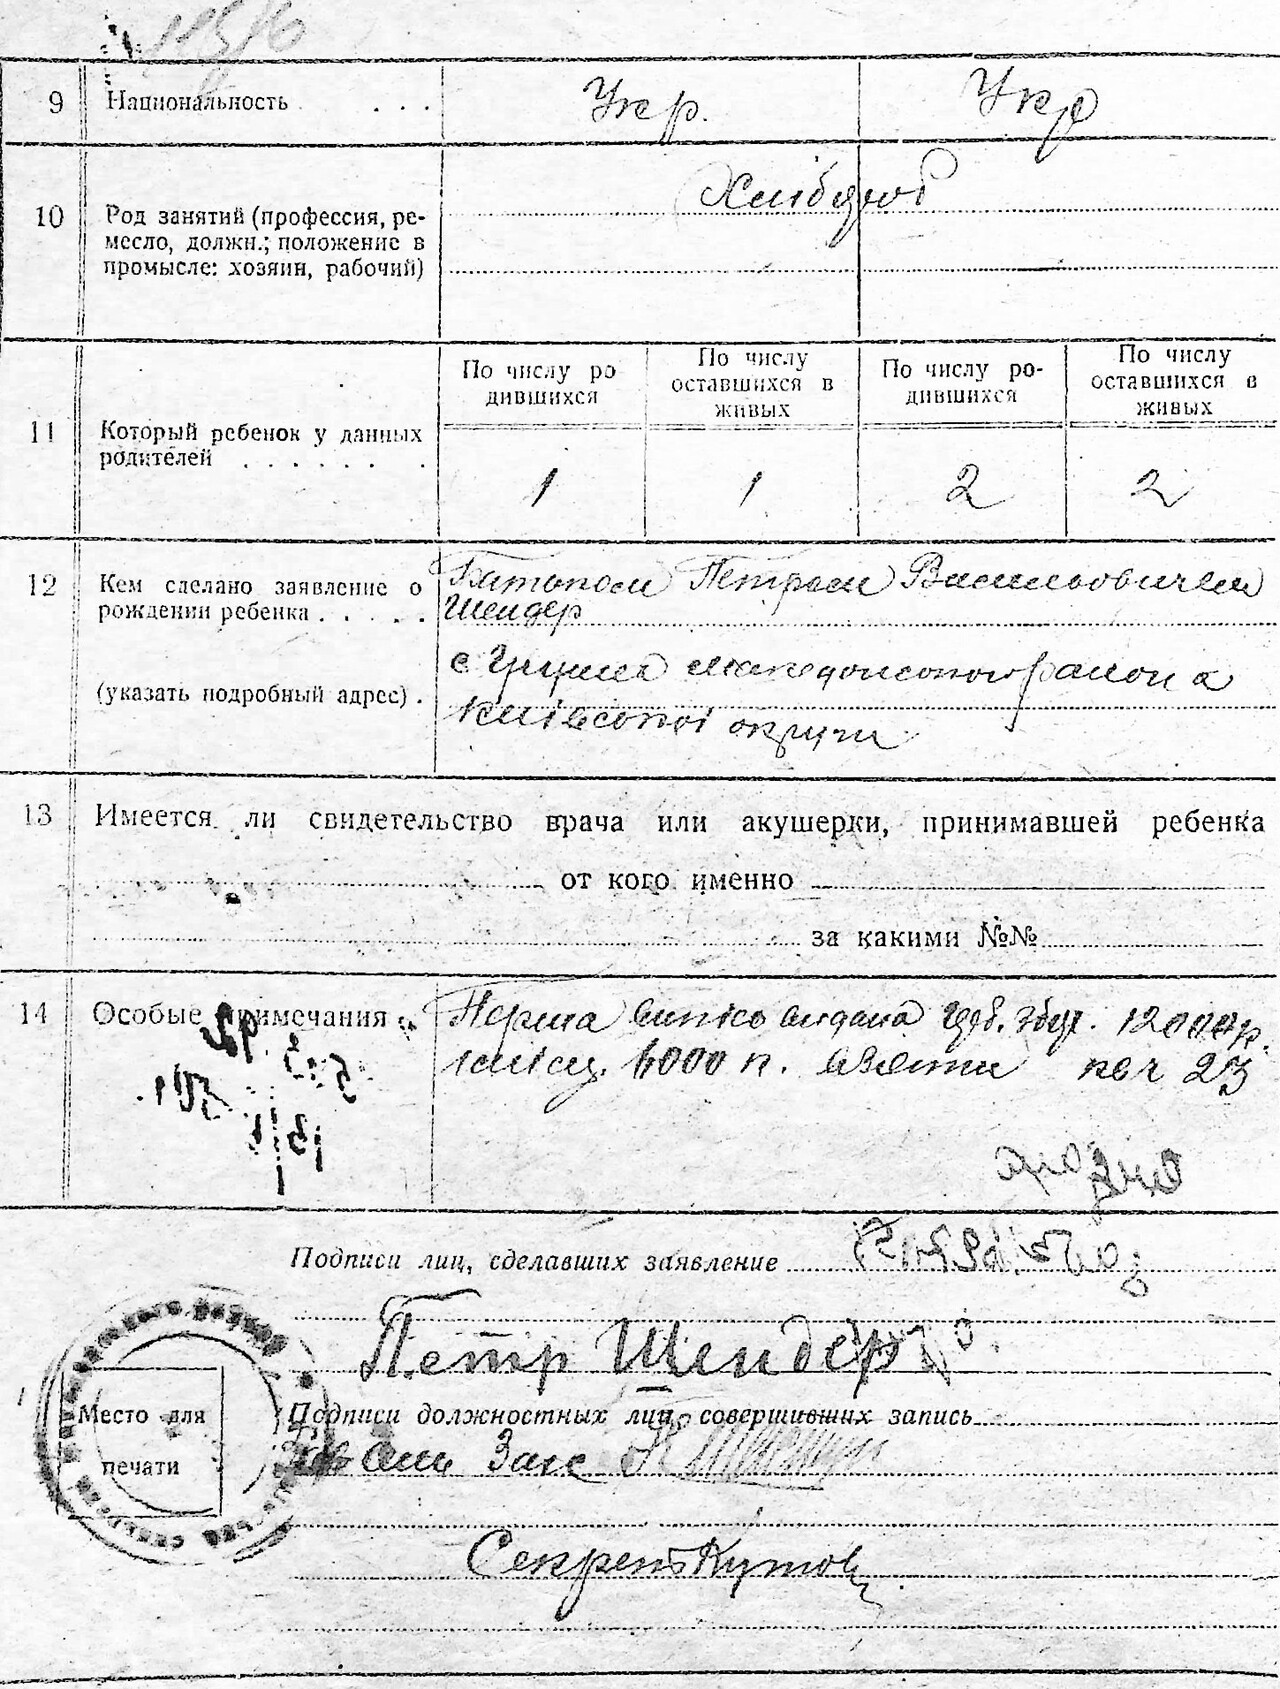 9 Национальность . . . Укр. Укр
10 Род занятий (профессия, ре-
месло, должн.; положение в
промысле: хозяин, рабочий)
Хлібороб
11 Который ребенок у данных
родителей . . . . . . .
По числу ро
дившихся
По числу
оставшихся в
живых
По числу ро-
дившихся
По числу
оставшихся в
живых
1 1 2 2
12 Кем сделано заявление о
рождении ребенка . . . . .
(указать подробный адрес) .
Батьком Петром Васильовичем
Шендер
с. района
Київської округи
13 Имеется ли свидетельство врача или акушерки, принимавшей ребенка
от кого именно
за какими №№
14 Особые примечания
Перша видана 12000 р.
6000 п. взяти 23
Подписи лиц, сделавших заявление
Петр Шендер
Подписи должностных лиц, совершивших запись
Зам
Секрет
Место для
печати